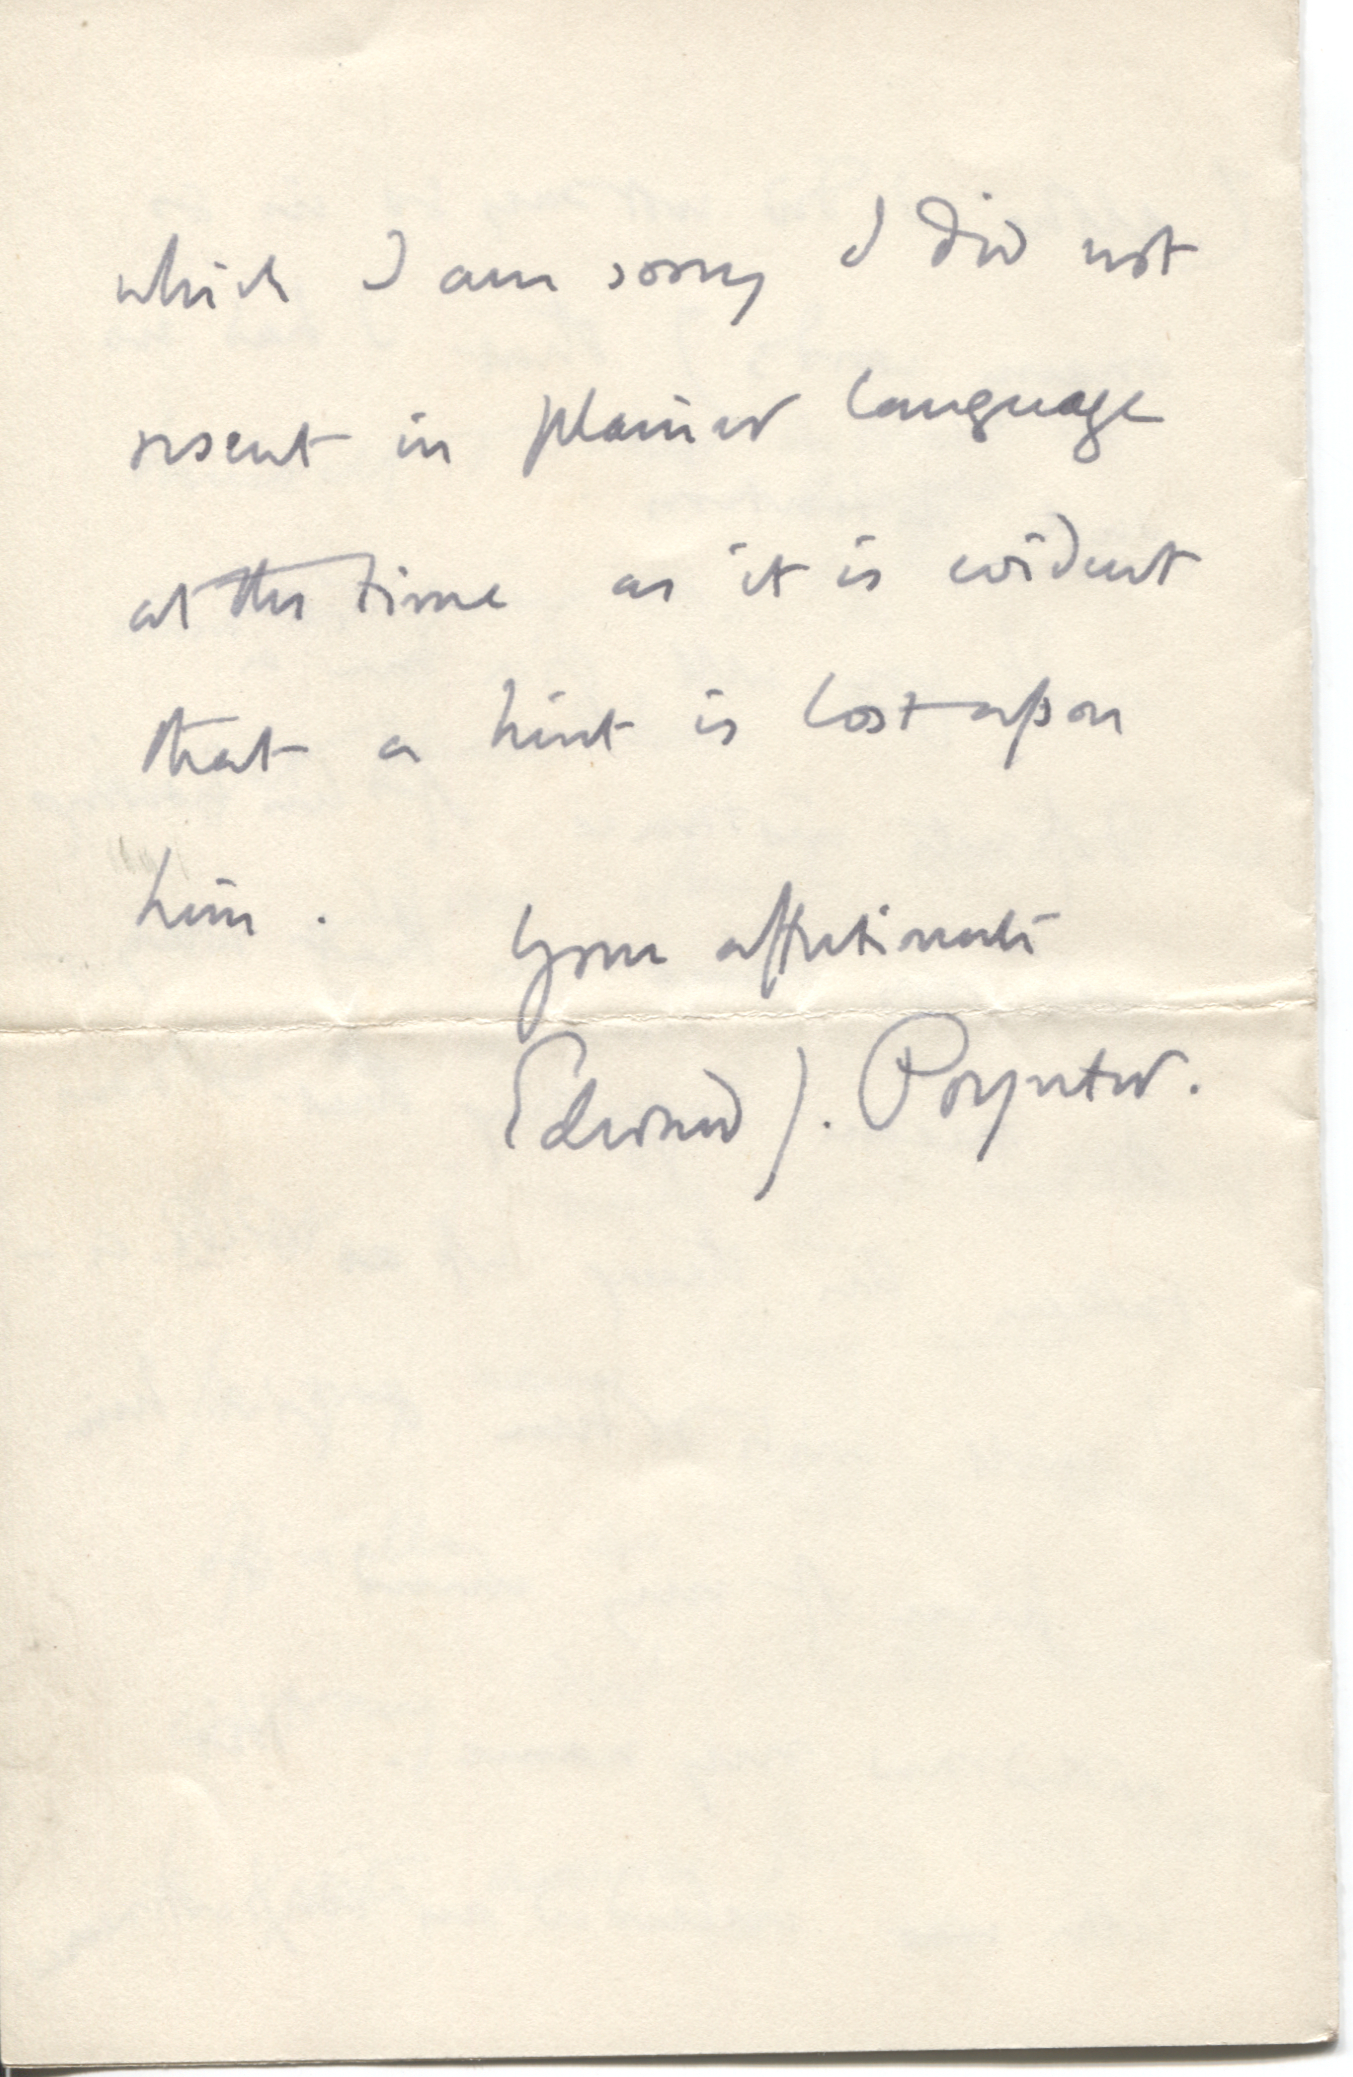 which I am sorry I did not
resent in plainer language
at the time as it is evident
that a hint is lost upon
him.
Your affectionate
Edward J. Poynter.